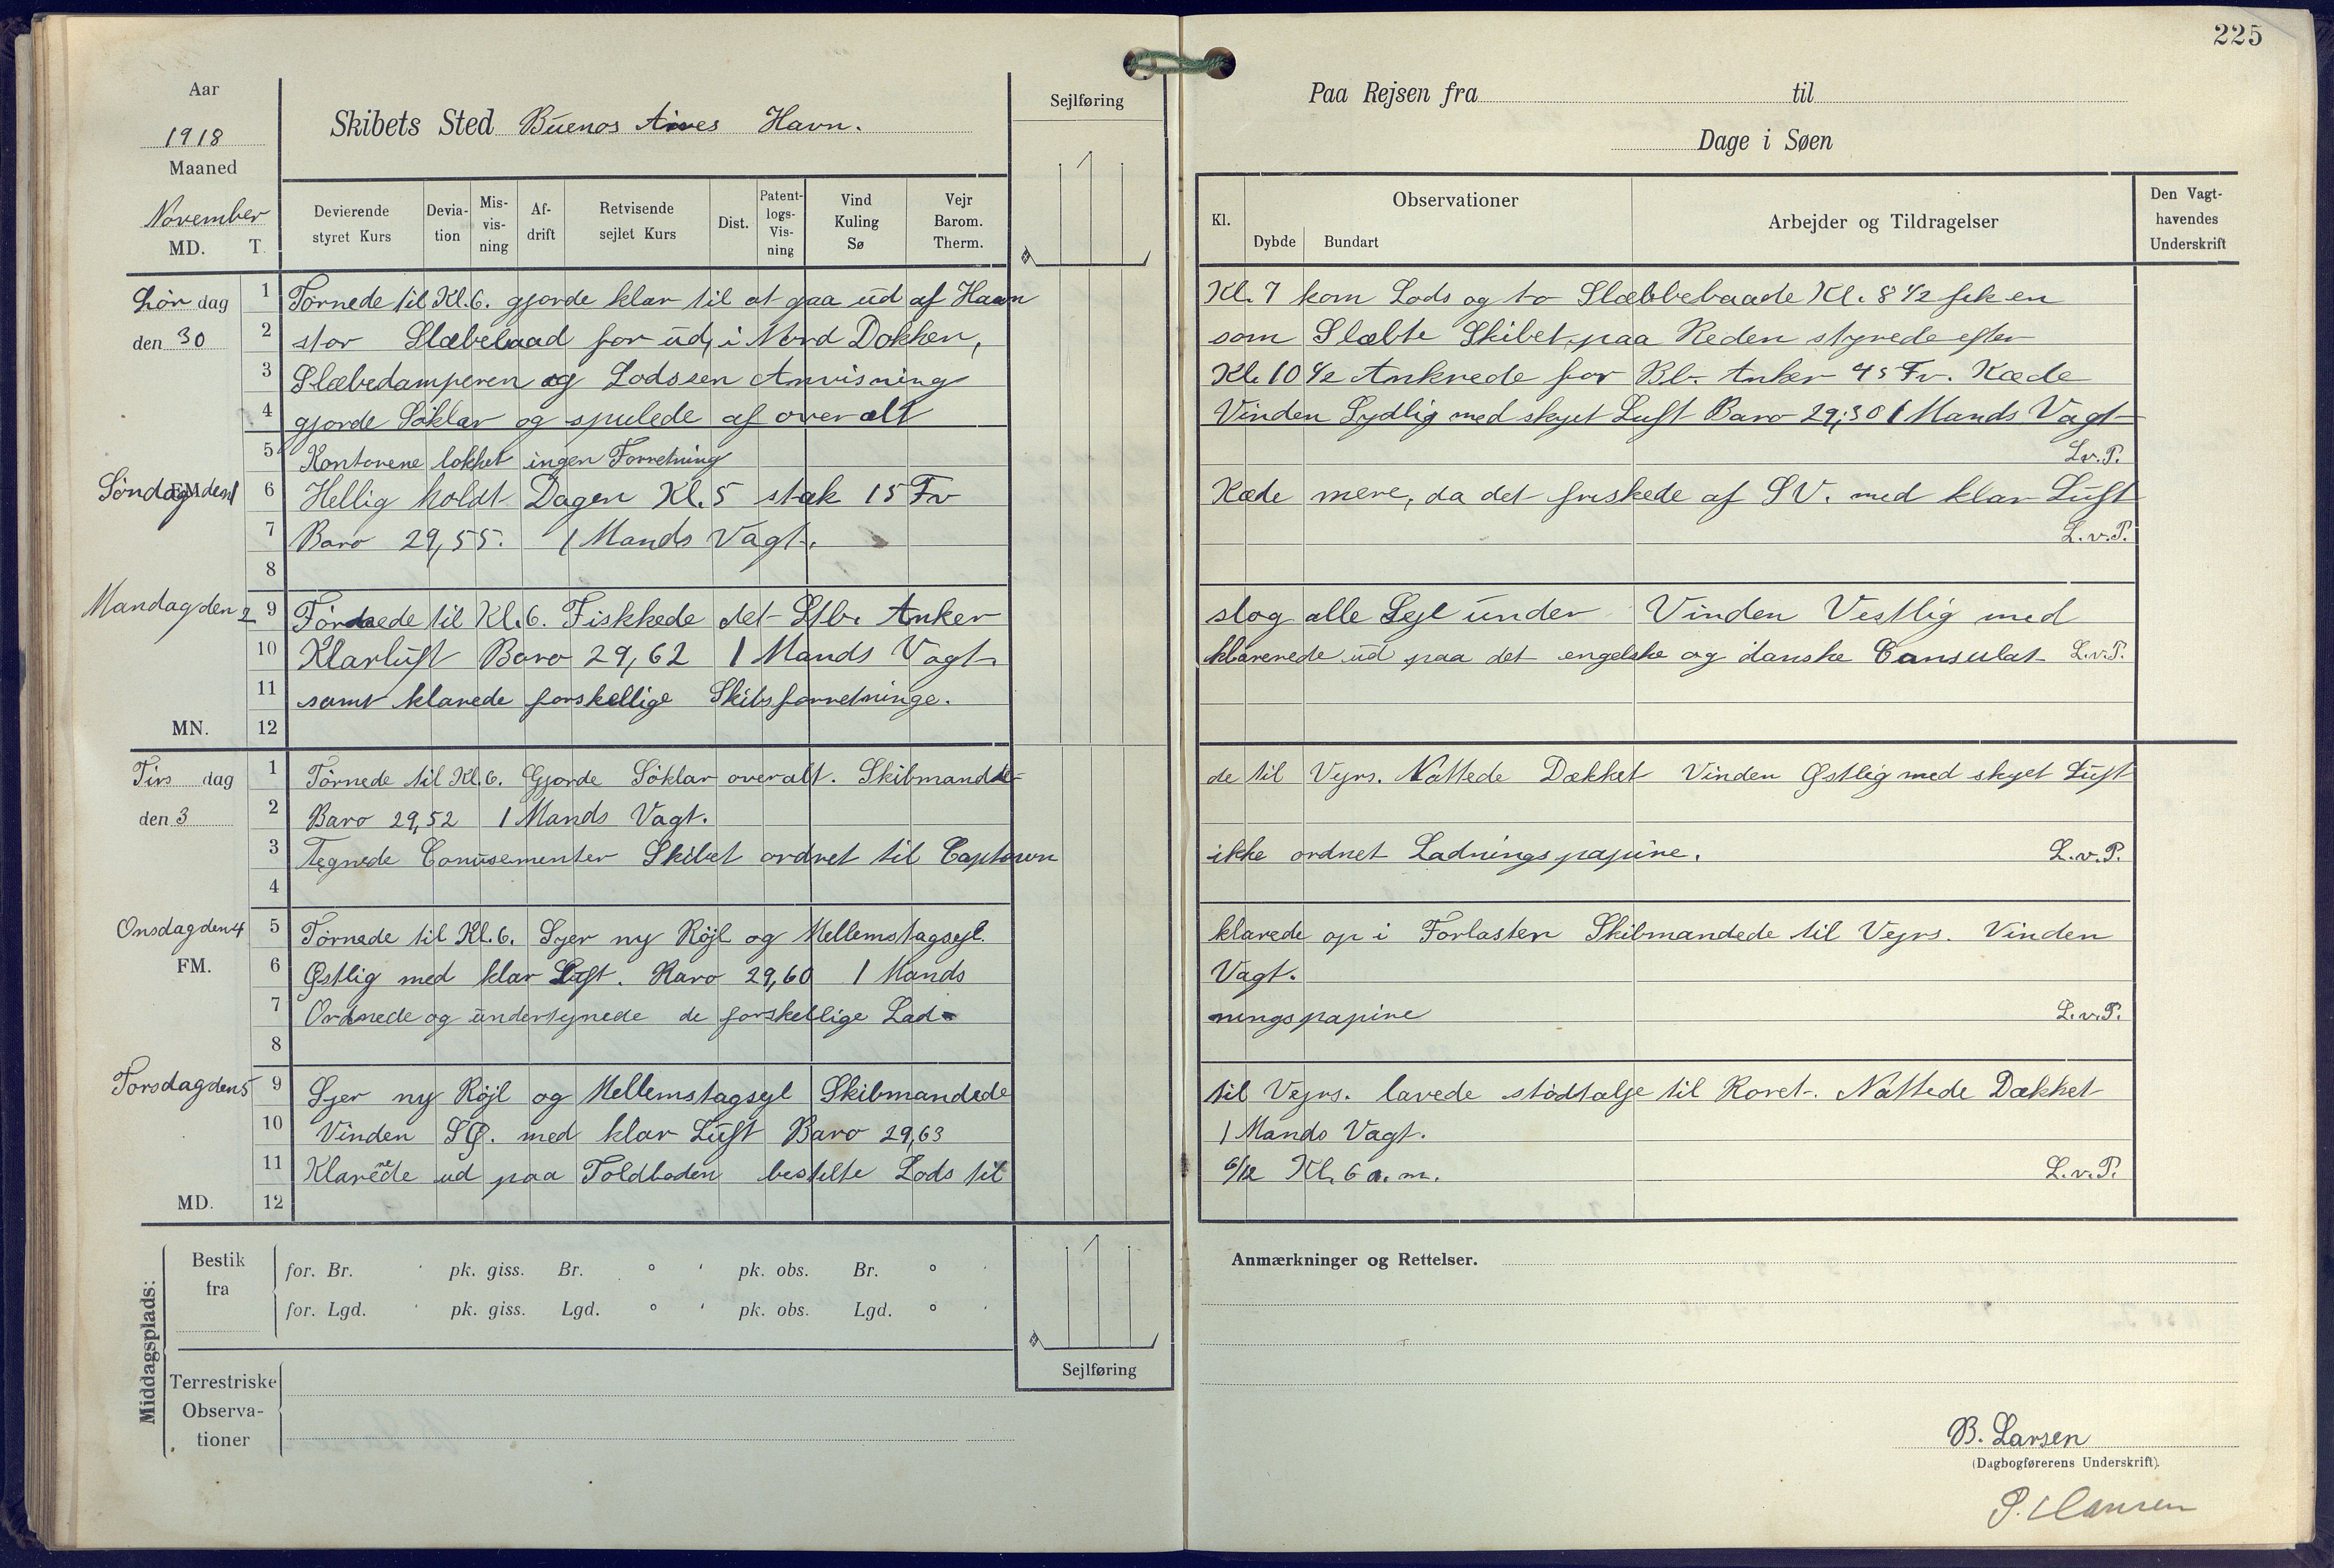 225
Aar
1918
Maaned
November
MD. T.
Skibets Sted Buenos Aires Havn.
Sejlføring
Paa Rejsen fra til
Dage i Søen
Devierende styret Kurs
Devia-tion
Mis-vis-ning
Af-drift
Retvisende sejlet Kurs
Dist.
Patent-logs-Vis-ning
Vind Kuling Sø
Vejr Barom. Therm.
Kl.
Observationer
Dybde Bundart
Arbejder og Tildragelser
Den Vagt-havendes Underskrift
Lør dag
den 30
1 Tørnede til Kl. 6. gjorde klar til at gaa ud af Havn Kl. 7 kom Lods og to Slæbbebaade Kl. 8 1/2 fik en
2 stor Slæbebaad for ud, i Nord Dokken, som Slæbte Skibet paa Reden styrede efter
3 Slæbedamperen og Lodssen Anvisning Kl. 10 1/2 Ankrede for Bb. Anker 45 Fv. Kæde
4 gjorde Søklar og spulede af overalt Vinden Sydlig med skyet Luft Baro 29,50 1 Mands Vagt
5 Kontorene lokket ingen Forretning L.v.P.
Søndag den 1
FM.
6 Hellig holdt Dagen Kl. 5 stak 15 Fv Kæde mere, da det friskede af SV. med klar Luft
7 Baro 29,55. 1 Mands Vagt. L.v.P.
8
Mandag den 2
9 Tørnede til Kl. 6. Fiskkede det Stb. Anker slog alle Sejl under Vinden Vestlig med
10 Klarluft Baro 29,62 1 Mands Vagt klarerede ud paa det engelske og danske Consulat L.v.P.
11 samt klarede forskellige Skibsforretninge.
MN. 12
Tirs dag
den 3
1 Tørnede til Kl. 6. Gjorde Søklar overalt. Skibmande- de til Vejrs. Nattede Dækket Vinden Østlig med skyet Luft
2 Baro 29,52 1 Mands Vagt.
3 Tegnede Conusementer Skibet ordret til Captown ikke ordnet Ladningspapire. L.v.P.
4
Onsdag den 4
FM.
5 Tørnede til Kl. 6. Syer ny Røjl og Mellemstagsejl. klarede op i Forlasten Skibmandede til Vejrs. Vinden
6 Østlig med klar Luft. Baro 29,60 1 Mands Vagt.
7 Ordnede og undertegnede de forskellige Lad- ningspapire L.v.P.
8
Torsdag den 5
9 Syer ny Røjl og Mellemstagsejl Skibmandede til Vejrs. lavede stødtalje til Roret. Nattede Dækket
10 Vinden SØ. med klar Luft Baro 29,63 1 Mands Vagt.
11 Klarerede ud paa Toldboden bestilte Lods til 6/12 Kl. 6 a.m. L.v.P.
MD. 12
Middagsplads:
Bestik fra
for. Br. ' pk. giss. Br. ° ' pk. obs. Br. ° '
for. Lgd. ' pk. giss. Lgd. ° ' pk. obs. Lgd. ° '
Sejlføring
Terrestriske Observa-tioner
Anmærkninger og Rettelser.
B. Larsen
(Dagbogførerens Underskrift).
P. Hansen